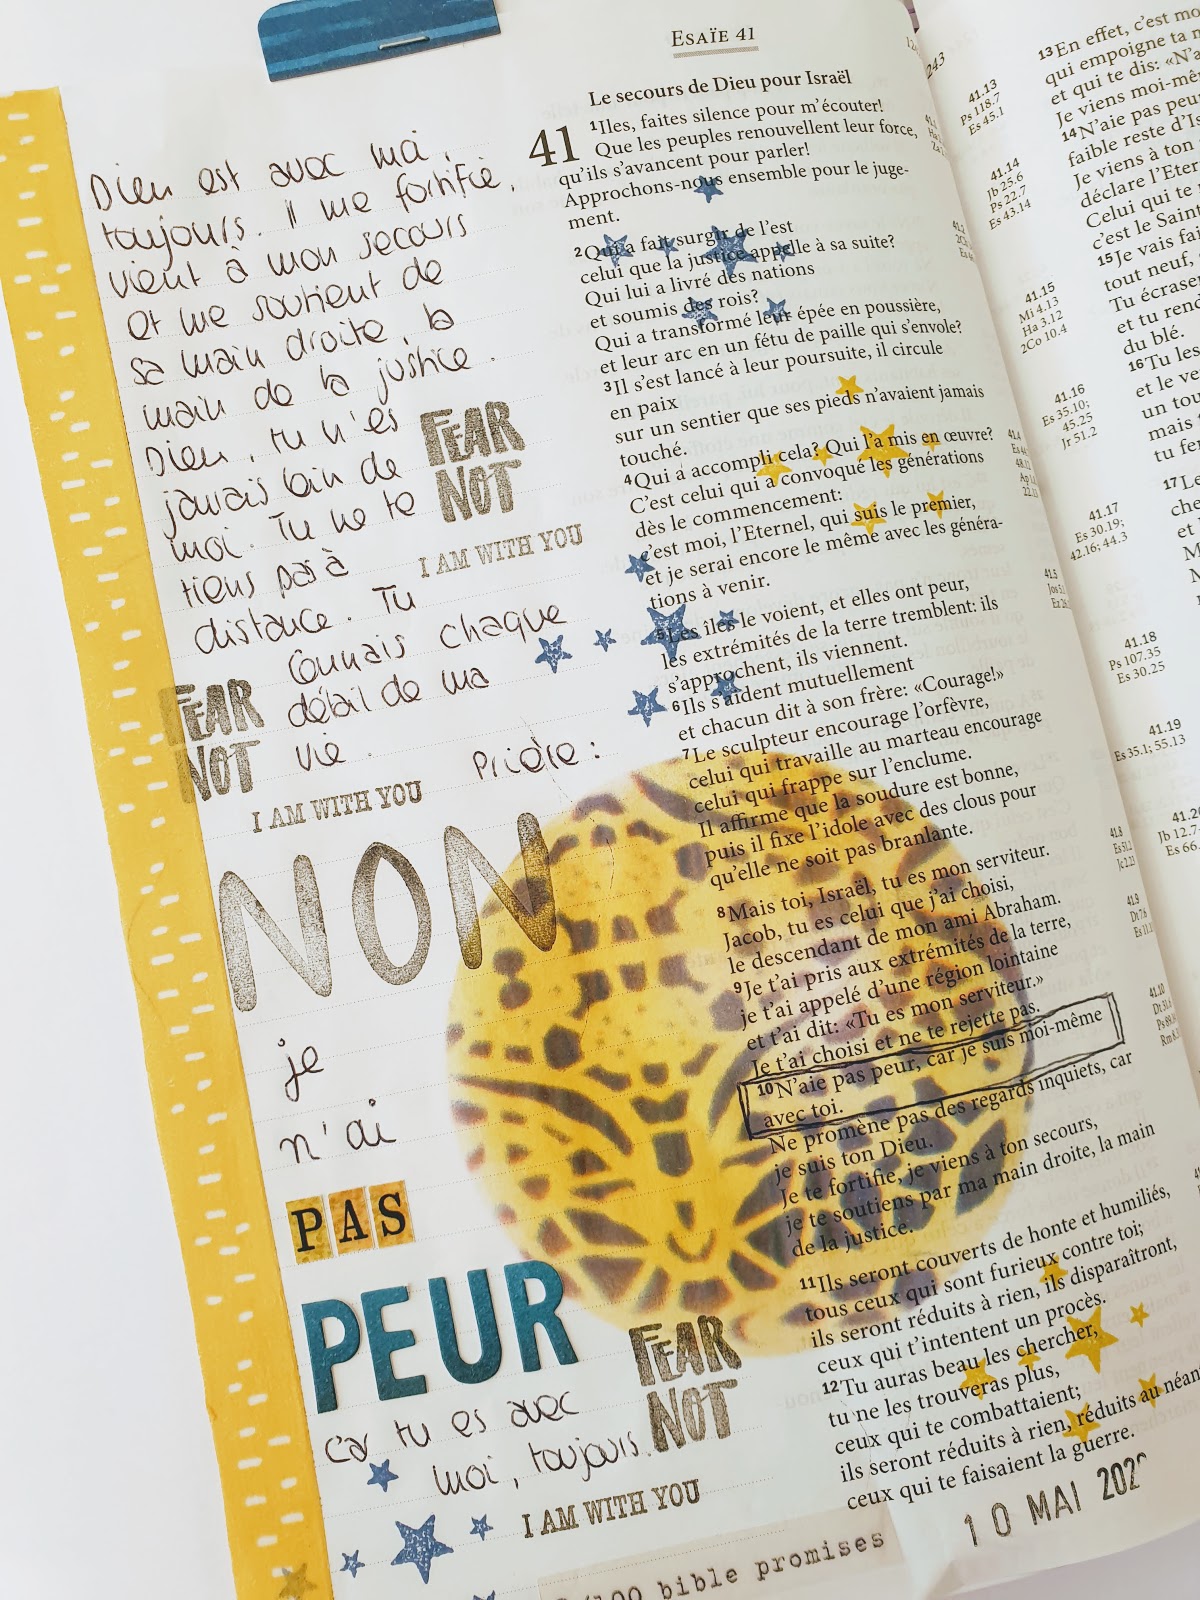 ESAÏE 41
Dieu est avec moi,
toujours. Il me fortifie,
vient à mon secours
et me soutient de
sa main droite, la
main de la justice.
Dieu, tu n'es
jamais loin de
moi. Tu ne te
tiens pas à
distance. Tu
connais chaque
détail de ma
vie.
FEAR
NOT
I AM WITH YOU
FEAR
NOT
I AM WITH YOU
Prière:
NON
je
n'ai
PAS
PEUR
car tu es avec
moi, toujours.
FEAR
NOT
I AM WITH YOU
100 bible promises
Le secours de Dieu pour Israël
41 1Iles, faites silence pour m'écouter!
Que les peuples renouvellent leur force,
qu'ils s'avancent pour parler!
Approchons-nous ensemble pour le juge-
ment.
2Qui a fait surgir de l'est
celui que la justice appelle à sa suite?
Qui lui a livré des nations
et soumis des rois?
Qui a transformé leur épée en poussière,
et leur arc en un fétu de paille qui s'envole?
3Il s'est lancé à leur poursuite, il circule
en paix
sur un sentier que ses pieds n'avaient jamais
touché.
4Qui a accompli cela? Qui l'a mis en œuvre?
C'est celui qui a convoqué les générations
dès le commencement:
c'est moi, l'Eternel, qui suis le premier,
et je serai encore le même avec les généra-
tions à venir.
5Les îles le voient, et elles ont peur,
les extrémités de la terre tremblent: ils
s'approchent, ils viennent.
6Ils s'aident mutuellement
et chacun dit à son frère: «Courage!»
7Le sculpteur encourage l'orfèvre,
celui qui travaille au marteau encourage
celui qui frappe sur l'enclume.
Il affirme que la soudure est bonne,
puis il fixe l'idole avec des clous pour
qu'elle ne soit pas branlante.
8Mais toi, Israël, tu es mon serviteur.
Jacob, tu es celui que j'ai choisi,
le descendant de mon ami Abraham.
9Je t'ai pris aux extrémités de la terre,
je t'ai appelé d'une région lointaine
et t'ai dit: «Tu es mon serviteur.»
Je t'ai choisi et ne te rejette pas.
10N'aie pas peur, car je suis moi-même
avec toi.
Ne promène pas des regards inquiets, car
je suis ton Dieu.
Je te fortifie, je viens à ton secours,
je te soutiens par ma main droite, la main
de la justice.
11Ils seront couverts de honte et humiliés,
tous ceux qui sont furieux contre toi;
ils seront réduits à rien, ils disparaîtront,
ceux qui t'intentent un procès.
12Tu auras beau les chercher,
tu ne les trouveras plus,
ceux qui te combattaient;
ils seront réduits à rien, réduits au néan
ceux qui te faisaient la guerre.
10 MAI 202
243
41.13
Ps 118.7
Es 45.1
41.14
Jb 25.6
Ps 22.7
Es 43.14
41.15
Mi 4.13
Ha 3.12
2Co 10.4
41.16
Es 35.10;
45.25
Jr 51.2
41.17
Es 30.19;
42.16; 44.3
41.18
Ps 107.35
Es 30.25
41.19
Es 35.1; 55.13
41.20
Jb 12.7-
Es 66.
41.8
Es 51.2
Jc 2.23
41.9
Dt 7.6
41.10
Dt 31.6
13En effet, c'est mo
qui empoigne ta m
et qui te dis: «N'a
Je viens moi-mê
14N'aie pas peur
faible reste d'Is
Je viens à ton
déclare l'Eter
Celui qui te
c'est le Saint
15Je vais fai
tout neuf,
Tu écraser
et tu rend
du blé.
16Tu les
et le ve
un tou
mais t
tu fer
17Le
che
et